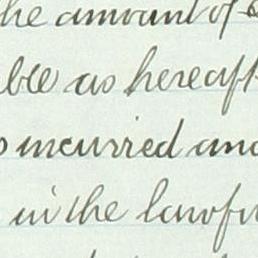 the amount of
ble as hereaft
incurred and
in the lawfu